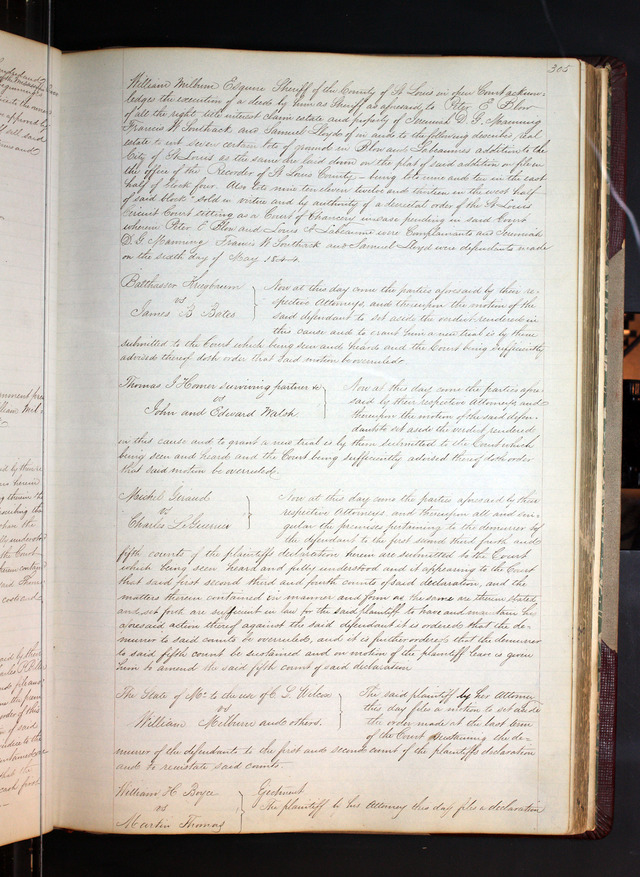 305
William Milburn Esquire Sheriff of the County of St Louis in open Court acknow
ledges the execution of a deed by him as Sheriff as aforesaid to Peter E Blow
of all the right title interest claim estate and property of Jeremiah D. G. Manning
Francis W Southack and Samuel Lloyd of in and to the following described real
estate to wit seven certain lots of ground in Blow and Labeaumes addition to the
City of St Louis as the same are laid down on the plat of said addition on file in
the office of the Recorder of St Louis County - being lots nine and ten in the east
half of block four. Also lots nine ten eleven twelve and thirteen in the west half
of said block - sold in virtue and by authority of a decretal order of the St Louis
Circuit Court sitting as a Court of Chancery in case pending in said Court
wherein Peter E Blow and Louis A Labeaume were Complainants and Jeremiah
D. G Manning Francis W Southack and Samuel Lloyd were defendants made
on the sixth day of May 1844.
Balthasser
vs
James B Bates
Now at this day come the parties aforesaid by their re-
spective Attorneys, and thereupon the motion of the
said defendant to set aside the verdict rendered in
this cause and to grant him a new trial is by them
submitted to the Court which being seen and heard and the Court being sufficiently
advised thereof doth order that said motion be overruled.
Thomas J Homer surviving partner &c
vs
John and Edward Walsh
Now at this day come the parties afore
said by their respective Attorneys and
thereupon the motion of the said defen
dants to set aside the verdict rendered
in this cause and to grant a new trial is by them submitted to the Court which
being seen and heard and the Court being sufficiently advised thereof doth order
that said motion be overruled.
Michel Giraud
vs
Charles LeGuerrier
Now at this day come the parties aforesaid by their
respective Attorneys and thereupon all and sin-
gular the premises pertaining to the demurrer of
the defendant to the first second third fourth and
fifth counts of the plaintiffs declaration herein are submitted to the Court
which being seen heard and fully understood and it appearing to the Court
that said first second third and fourth counts of said declaration, and the
matters therein contained in manner and form as the same are therein stated
and set forth are sufficient in law for the said plaintiff to have and maintain his
aforesaid action thereof against the said defendant it is ordered that the de-
murrer to said counts be overruled, and it is further ordered that the demurrer
to said fifth count be sustained and on motion of the plaintiff leave is given
him to amend the said fifth count of said declaration
The State of Mo. to the use of C L Wilcox
vs
William Milburn and others.
The said plaintiff by her Attorney
this day files a motion to set aside
the order made at the last term
of the Court sustaining the de-
murrer of the defendants to the first and second count of the plaintiffs declaration
and to reinstate said counts.
William H Boyce
vs
Martin Thomas
Ejectment
The plaintiff by his Attorney this day files a declaration